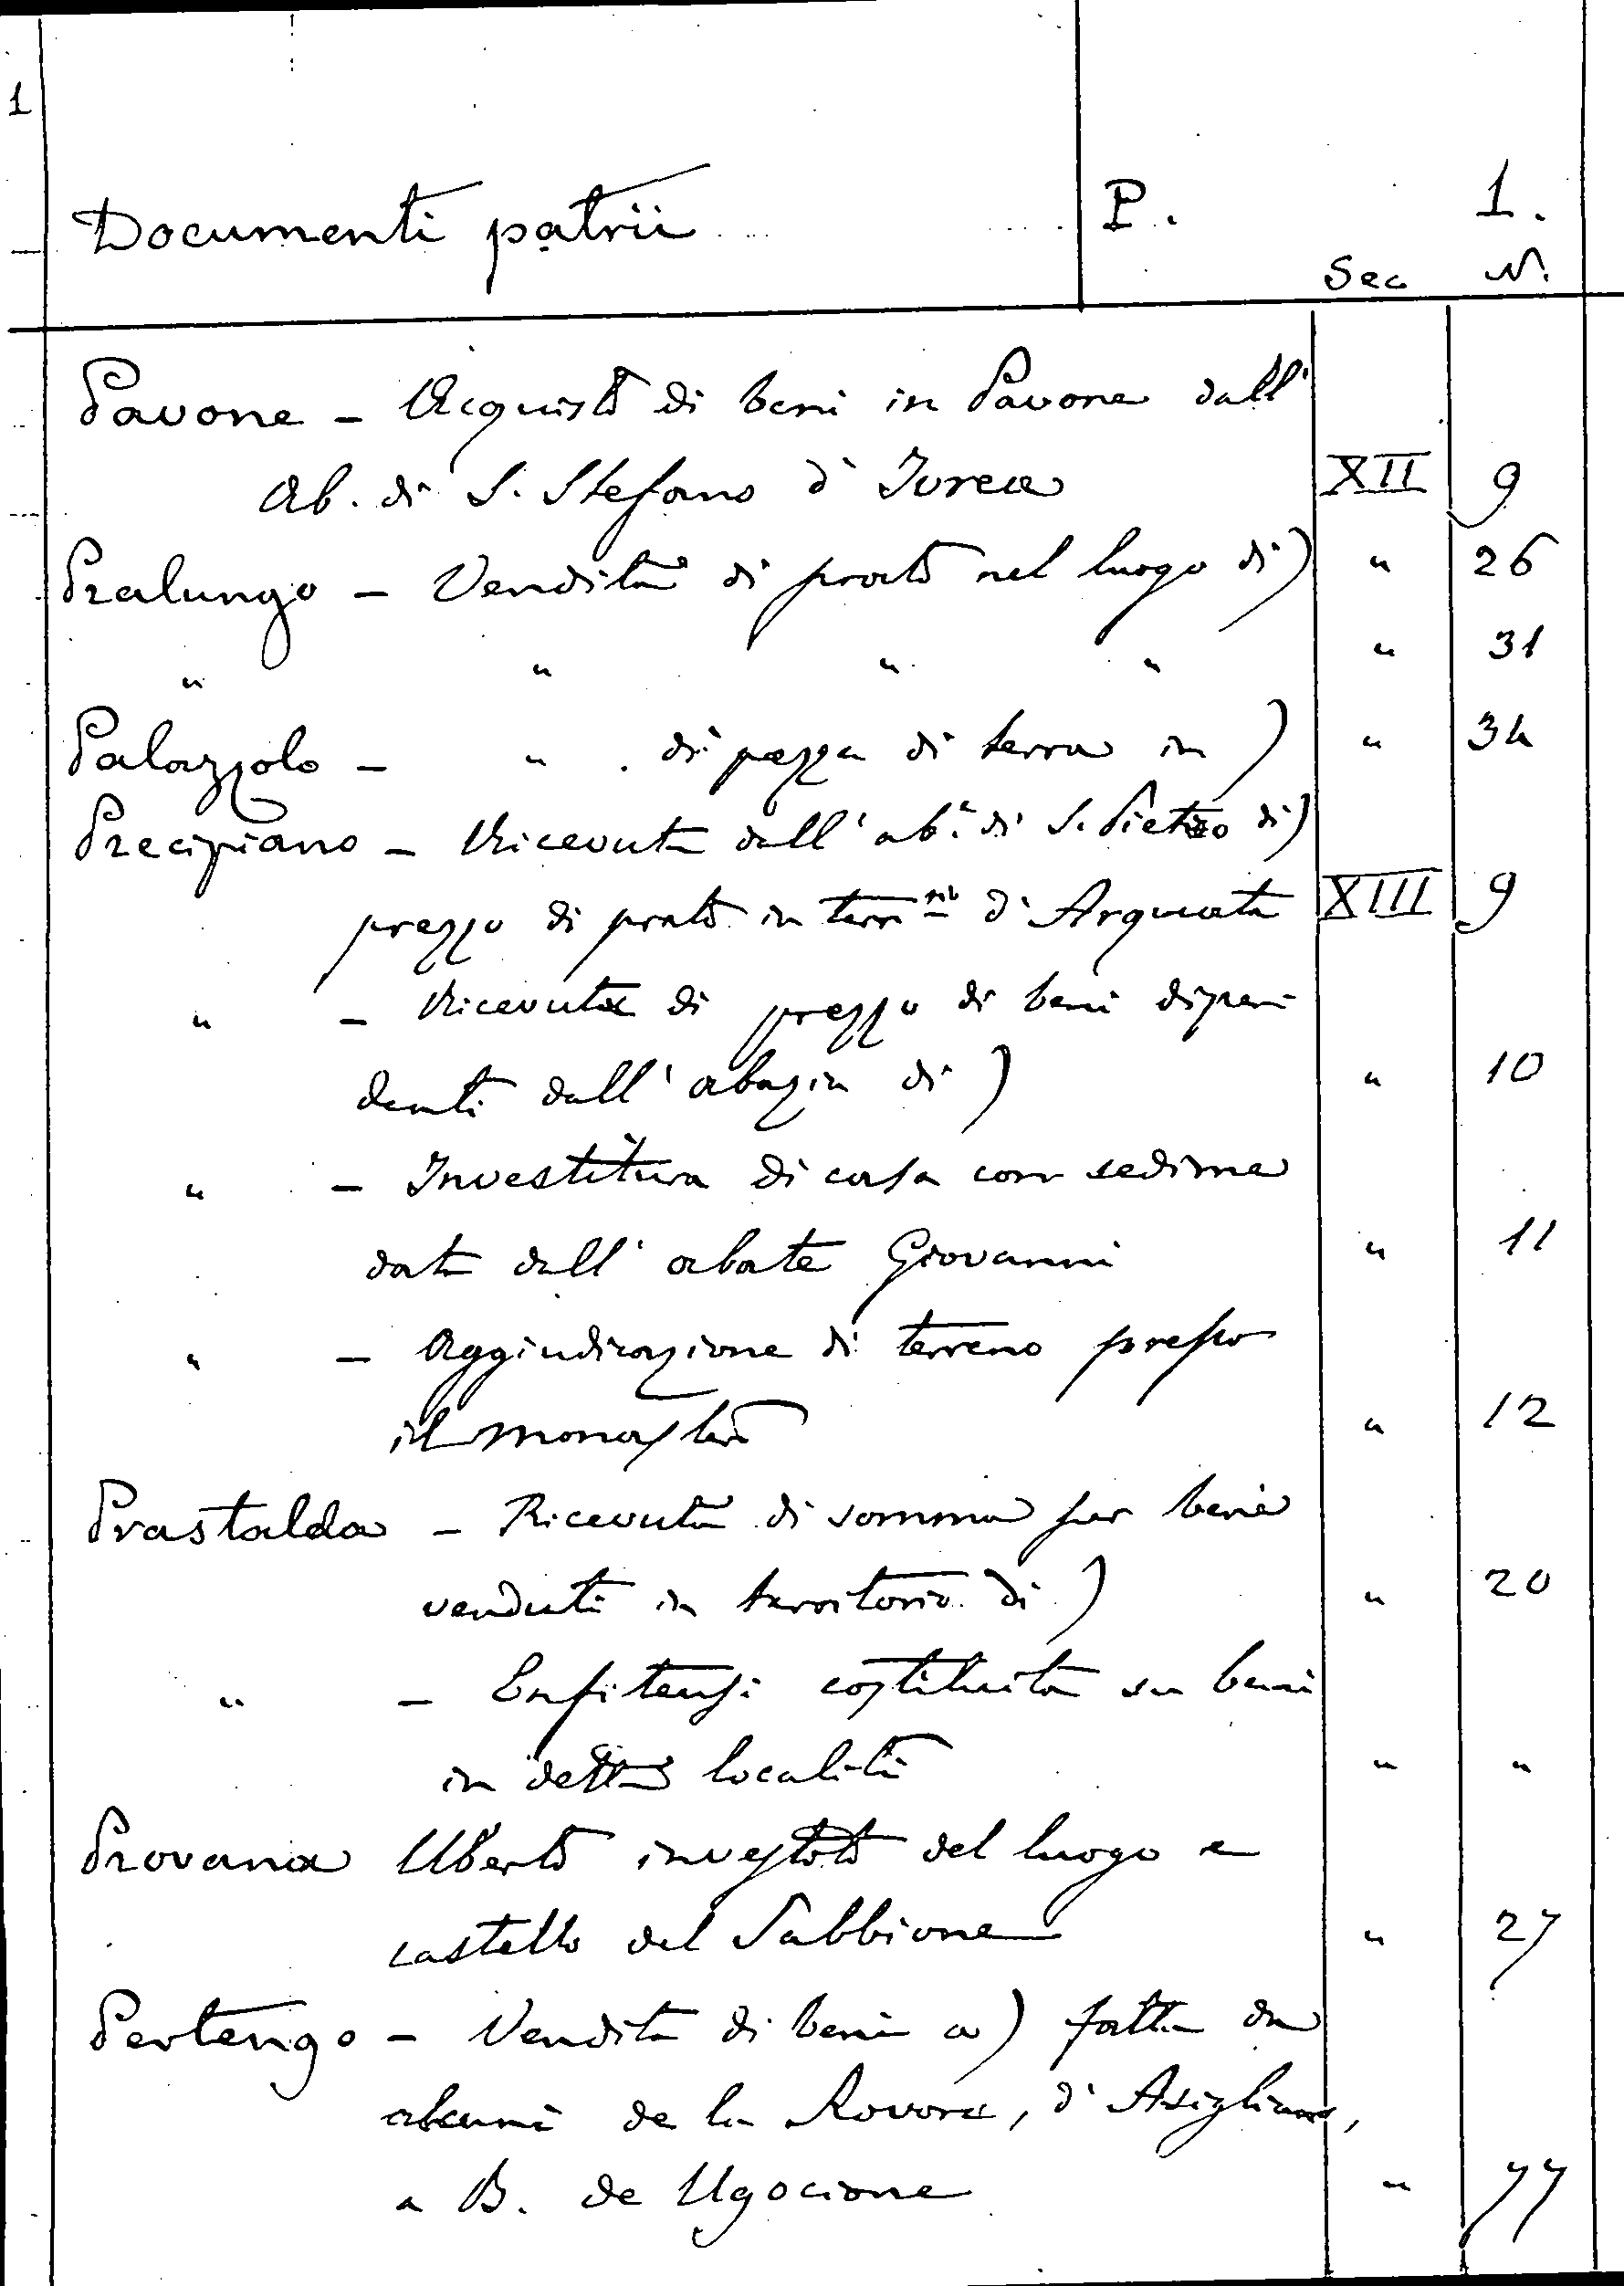 1
Documenti patrii P. 1.
Sec N.
Pavone - Acquisto di beni in Pavone dall'
Ab. di S. Stefano d'Ivrea XII 9
Pralungo - Vendita di prato nel luogo di) " 26
" " " " " 31
Palazzolo - " di pezza di terra in) " 34
Precipiano - Ricevuta dall'ab.e di S. Pietro di)
prezzo di prato in terr.rio d'Arquata XIII 9
" - Ricevuta di prezzo di beni dipen-
denti dall'abazia di) " 10
" - Investitura di casa con sedime
data dall'abate Giovanni " 11
" - Aggiudicazione di terreno presso
il monastero " 12
Prastalda - Ricevuta di somma per beni
venduti in territorio di) " 20
" - Enfiteusi costituita su beni
in detta località " "
Provana Uberto investito del luogo e
castello del Sabbione " 27
Pertengo - Vendita di beni a) fatta da
alcuni de la Rovore, d'Asigliano,
a B. de Ugocione " 77